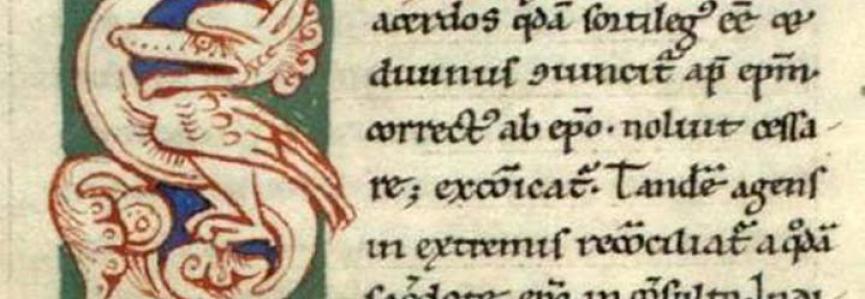 acerdos qdā sortileg᷒ eē ⁊
diuinus ꝯuincit᷑ ap̄ ep̄m·
correct᷒ ab ep̄o· noluit cessa
re; excōicat᷑· Tandē agens
in extremis recōciliat᷑ a qͦdā